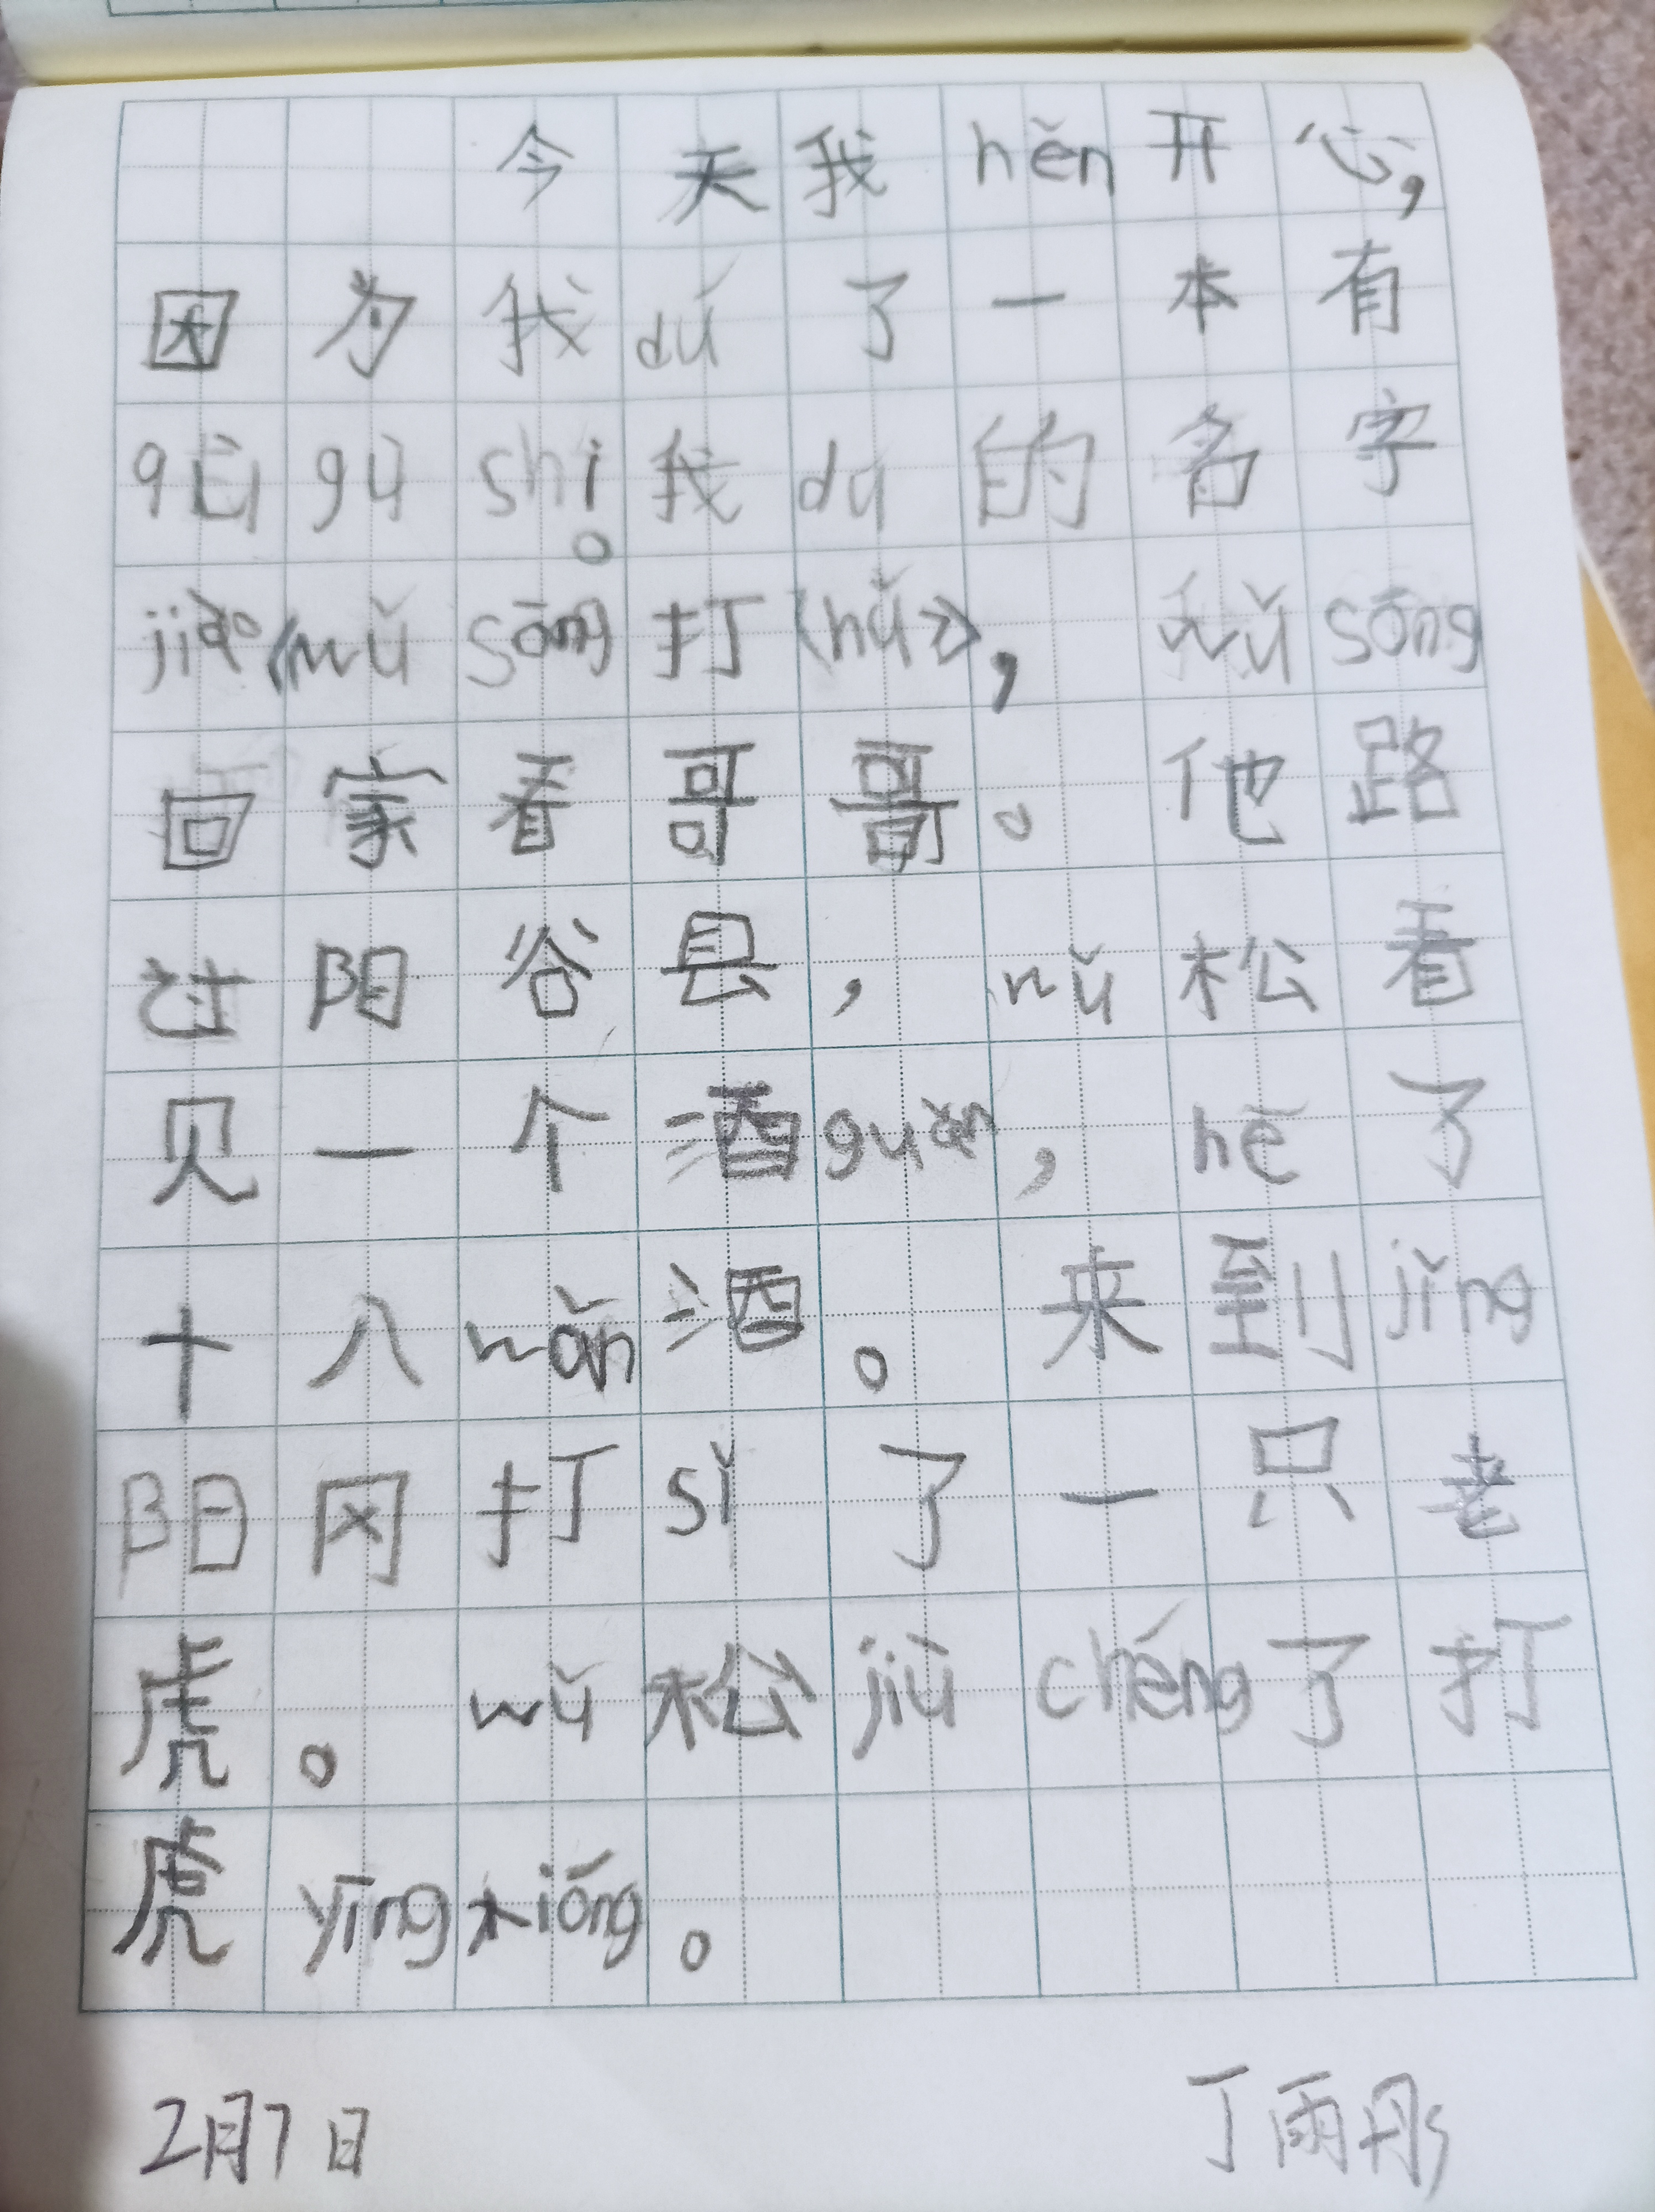 今天我hěn开心,
因为我dú了一本有
qù gù shi。我du的名字
jiào《wǔ sōng打hǔ》, wǔ sōng
回家看哥哥。他路
过阳谷县, wǔ松看
见一个酒guǎn, hē了
十八wǎn酒。来到jǐng
阳冈打sǐ了一只老
虎。wǔ松jiù chéng了打
虎yīng xióng。
2月7日 丁雨彤